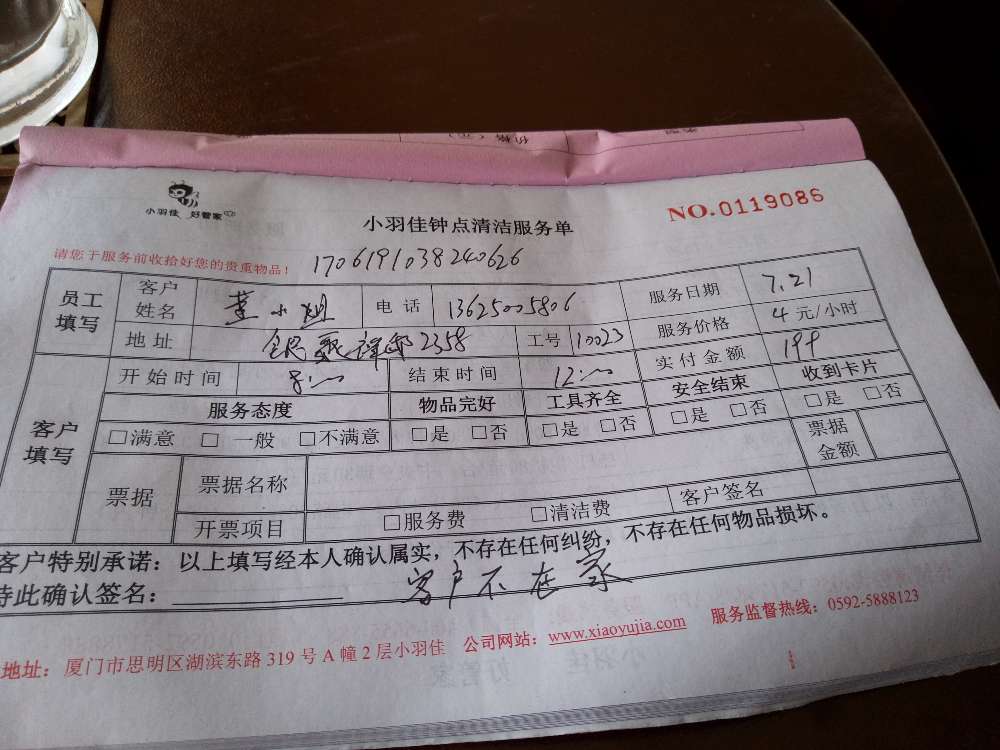 小羽佳 好管家
小羽佳钟点清洁服务单
NO.0119086
请您于服务前收拾好您的贵重物品！
1706191038240626
员工填写 客户姓名 小姐 电话 13625005806 服务日期 7.21
地址 2358 工号 10023 服务价格 4 元/小时
开始时间 8:00 结束时间 12:00 实付金额 199
客户填写 服务态度 物品完好 工具齐全 安全结束 收到卡片
□满意 □ 一般 □不满意 □是 □否 □是 □否 □是 □否 □是 □否
票据 票据名称 票据金额
开票项目 □服务费 □清洁费 客户签名
客户特别承诺：以上填写经本人确认属实，不存在任何纠纷，不存在任何物品损坏。
特此确认签名：
客户不在家
地址：厦门市思明区湖滨东路 319 号 A 幢 2 层小羽佳 公司网站：www.xiaoyujia.com 服务监督热线：0592-5888123